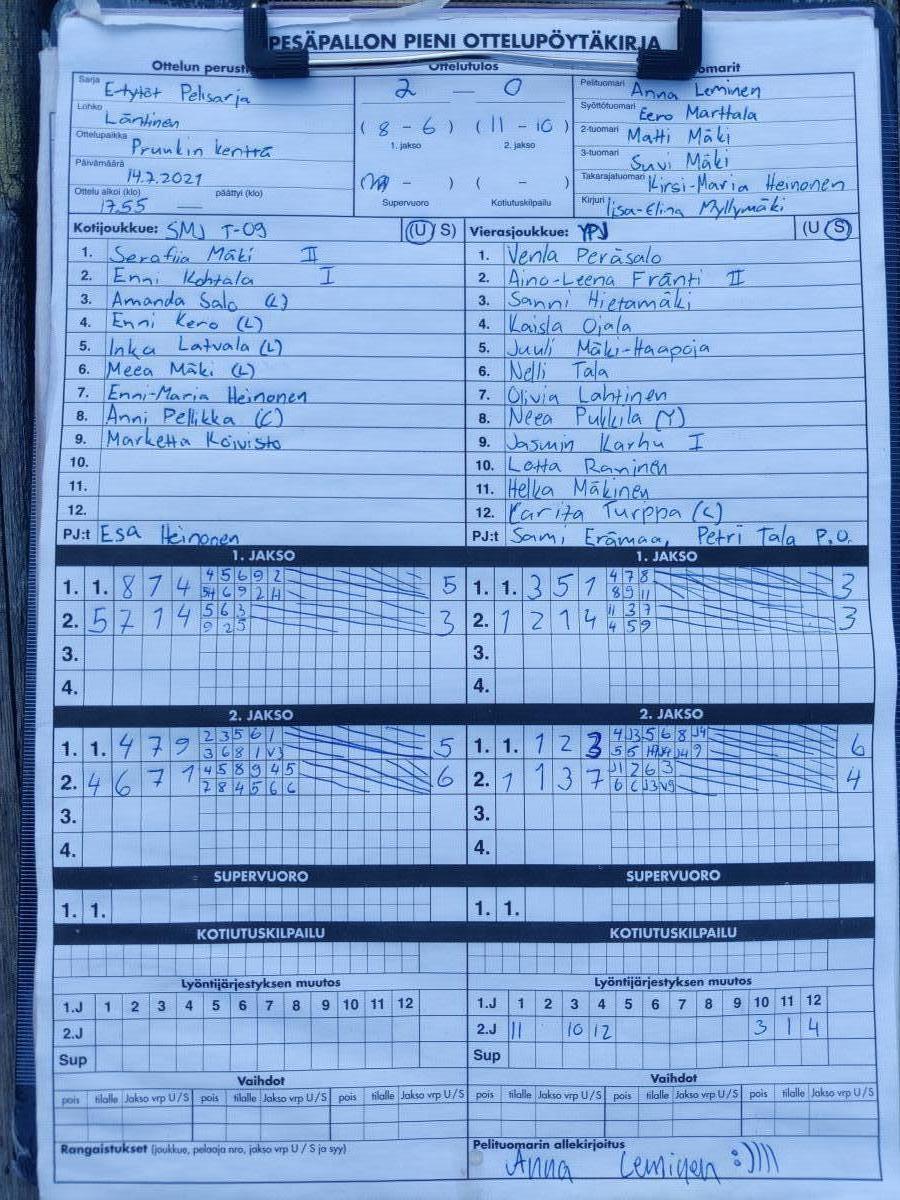 PESÄPALLON PIENI OTTELUPÖYTÄKIRJA
Ottelutulos
Sarja E-tytöt Pelisarja
Lohko Läntinen
Ottelupaikka Pruukin kenttä
Päivämäärä 14.7.2021
Ottelu alkoi (klo) päättyi (klo)
17.55 —
2 — 0
( 8 - 6 ) ( 11 - 10 )
1. jakso 2. jakso
( - ) ( - )
Supervuoro Kotiutuskilpailu
Pelituomari Anna Leminen
Syöttötuomari Eero Marttala
2-tuomari Matti Mäki
3-tuomari Suvi Mäki
Takarajatuomari Kirsi-Maria Heinonen
Kirjuri Iisa-Elina Myllymäki
Kotijoukkue: SMJ T-09 (U/S)
1. Serafiia Mäki II
2. Enni Kohtala I
3. Amanda Salo (L)
4. Enni Kero (L)
5. Inka Latvala (L)
6. Meea Mäki (L)
7. Enni-Maria Heinonen
8. Anni Pellikka (C)
9. Marketta Koivisto
10.
11.
12.
PJ:t Esa Heinonen
Vierasjoukkue: YPJ (U/S)
1. Venla Peräsalo
2. Aino-Leena Fränti II
3. Sanni Hietamäki
4. Kaisla Ojala
5. Juuli Mäki-Haapoja
6. Nelli Tala
7. Olivia Lahtinen
8. Neea Pukkila (Y)
9. Jasmin Karhu I
10. Lotta Raninen
11. Helka Mäkinen
12. Karita Turppa (L)
PJ:t Sami Erämaa, Petri Tala P.O.
1. JAKSO 1. JAKSO
1. 1. 8 7 4 4 5 6 9 2 5
2. 5 7 1 4 5 6 3 3
9 2 5
3.
4.
1. 1. 3 5 1 4 7 8 3
8 9 11
2. 1 2 1 4 11 3 7 3
4 5 9
3.
4.
2. JAKSO 2. JAKSO
1. 1. 4 7 9 2 3 5 6 1 5
3 6 8 1 V3
2. 4 6 7 1 4 5 8 9 4 5 6
2 8 4 5 6 6
3.
4.
1. 1. 1 2 3 4 J3 5 6 8 J4 6
2. 1 1 3 7 J1 2 6 3 4
6 6 J3 V9
3.
4.
SUPERVUORO SUPERVUORO
1. 1. 1. 1.
KOTIUTUSKILPAILU KOTIUTUSKILPAILU
Lyöntijärjestyksen muutos Lyöntijärjestyksen muutos
1.J 1 2 3 4 5 6 7 8 9 10 11 12
2.J
Sup
1.J 1 2 3 4 5 6 7 8 9 10 11 12
2.J 11 10 12 3 1 4
Sup
Vaihdot Vaihdot
pois tilalle Jakso vrp U/S pois tilalle Jakso vrp U/S pois tilalle Jakso vrp U/S
pois tilalle Jakso vrp U/S pois tilalle Jakso vrp U/S pois tilalle Jakso vrp U/S
Rangaistukset (joukkue, pelaaja nro, jakso vrp U / S ja syy)
Pelituomarin allekirjoitus
Anna Leminen :))))